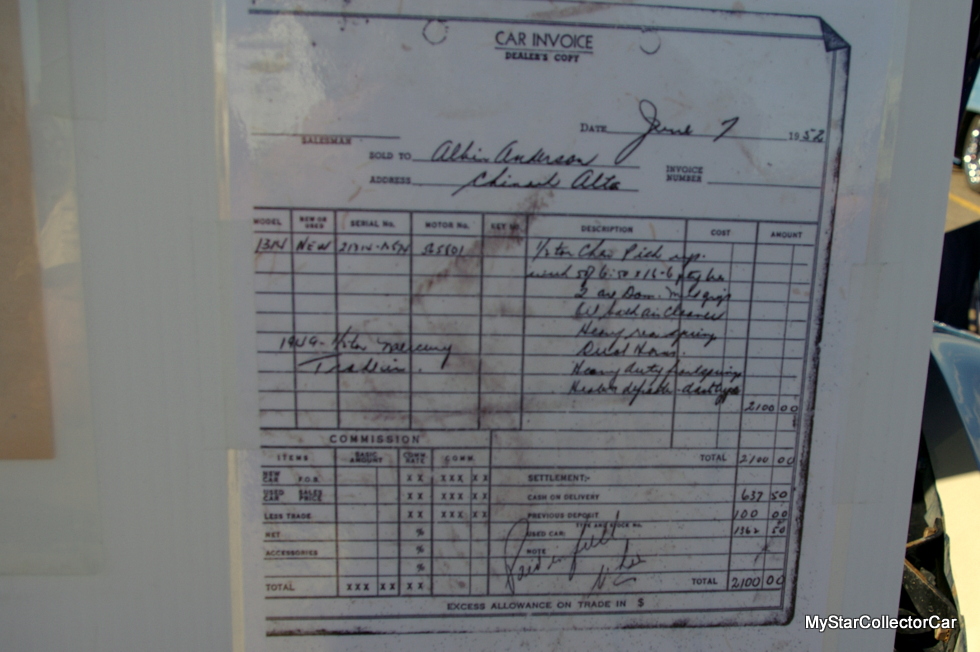 CAR INVOICE
DEALER'S COPY
DATE June 7 1952
SALESMAN
SOLD TO Albin Anderson
INVOICE NUMBER
ADDRESS Chinook Alta
MODEL NEW OR USED SERIAL No. MOTOR No. KEY No. DESCRIPTION COST AMOUNT
1314 NEW 1/2 ton Chev Pick up.
2
Oil bath air Cleaner
Heavy rear spring
1949- 1/2 ton Mercury Dual Horns.
Trade in. Heavy duty front spring
Heater
2100 00
COMMISSION
ITEMS BASIC AMOUNT COMM. RATE COMM. TOTAL 2100 00
NEW CAR F.O.B. XX XXX XX SETTLEMENT:-
USED CAR SALES PRICE XX XXX XX CASH ON DELIVERY 637 50
LESS TRADE XX XXX XX PREVIOUS DEPOSIT 100 00
TYPE AND STOCK No.
NET % USED CAR 1362 50
ACCESSORIES % NOTE
Paid in full
%
TOTAL XXX XX XX TOTAL 2100 00
EXCESS ALLOWANCE ON TRADE IN $
MyStarCollectorCar